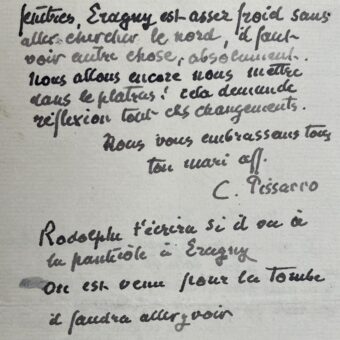 fenêtres, Eragny est assez froid sans
aller chercher le nord, il faut
voir autre chose, absolument.
Nous allons encore nous mettre
dans le platras! cela demande
réflexion tout ces changements.
Nous vous embrassons tous
ton mari aff.
C. Pissarro
Rodolphe t'écrira si il va à
la à Eragny
On est venu pour la Tombe
il faudra aller y voir